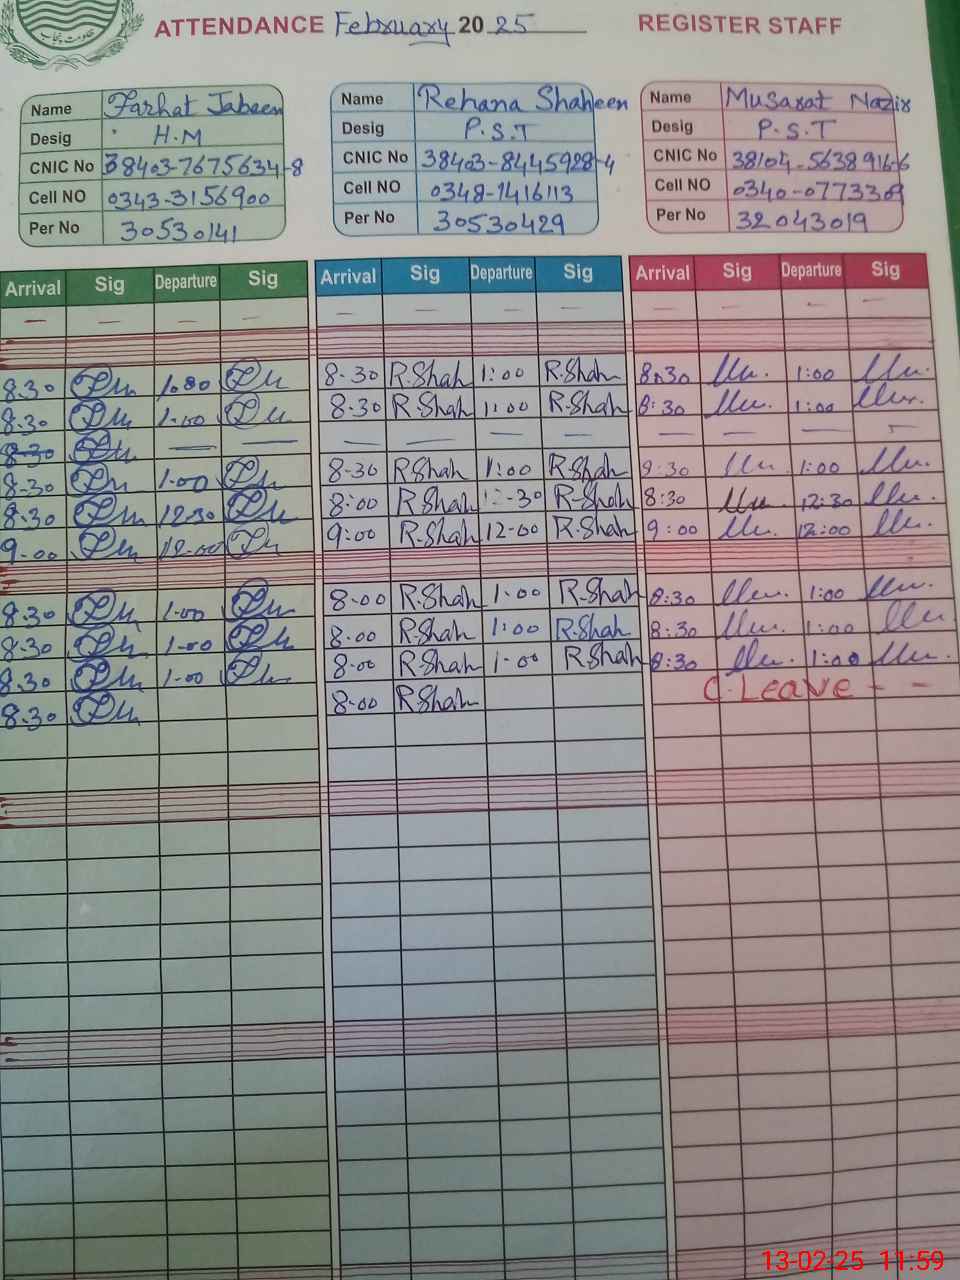 ATTENDANCE February 2025 REGISTER STAFF
حکومت پنجاب
Name Farhat Jabeen Name Rehana Shaheen Name Musarat Nazir
Desig H.M Desig P.S.T Desig P.S.T
CNIC No 38403-7675634-8 CNIC No 38403-8445928-4 CNIC No 38104-5638916-6
Cell NO 0343-3156900 Cell NO 0348-7416113 Cell NO 0340-0773309
Per No 30530141 Per No 30530429 Per No 32043019
Arrival Sig Departure Sig Arrival Sig Departure Sig Arrival Sig Departure Sig
— — — — — — — — — — — —
8.30 1.00 8-30 R.Shah 1:00 R.Shah 8:30 1:00
8.30 1.00 8-30 R.Shah 1:00 R.Shah 8:30 1:00
8-30 — — — — — — — — — —
8-30 1.00 8-30 R.Shah 1:00 R.Shah 8:30 1:00
8.30 12.30 8:00 R.Shah 12-30 R.Shah 8:30 12:30
9.00 12.00 9:00 R.Shah 12-00 R.Shah 9:00 12:00
8.30 1.00 8-00 R.Shah 1.00 R.Shah 8:30 1:00
8.30 1.00 8.00 R.Shah 1:00 R.Shah 8:30 1:00
8.30 1.00 8.00 R.Shah 1-00 R.Shah 8:30 1:00
8.30 8.00 R.Shah C. LEAVE - -
13-02-25 11:59